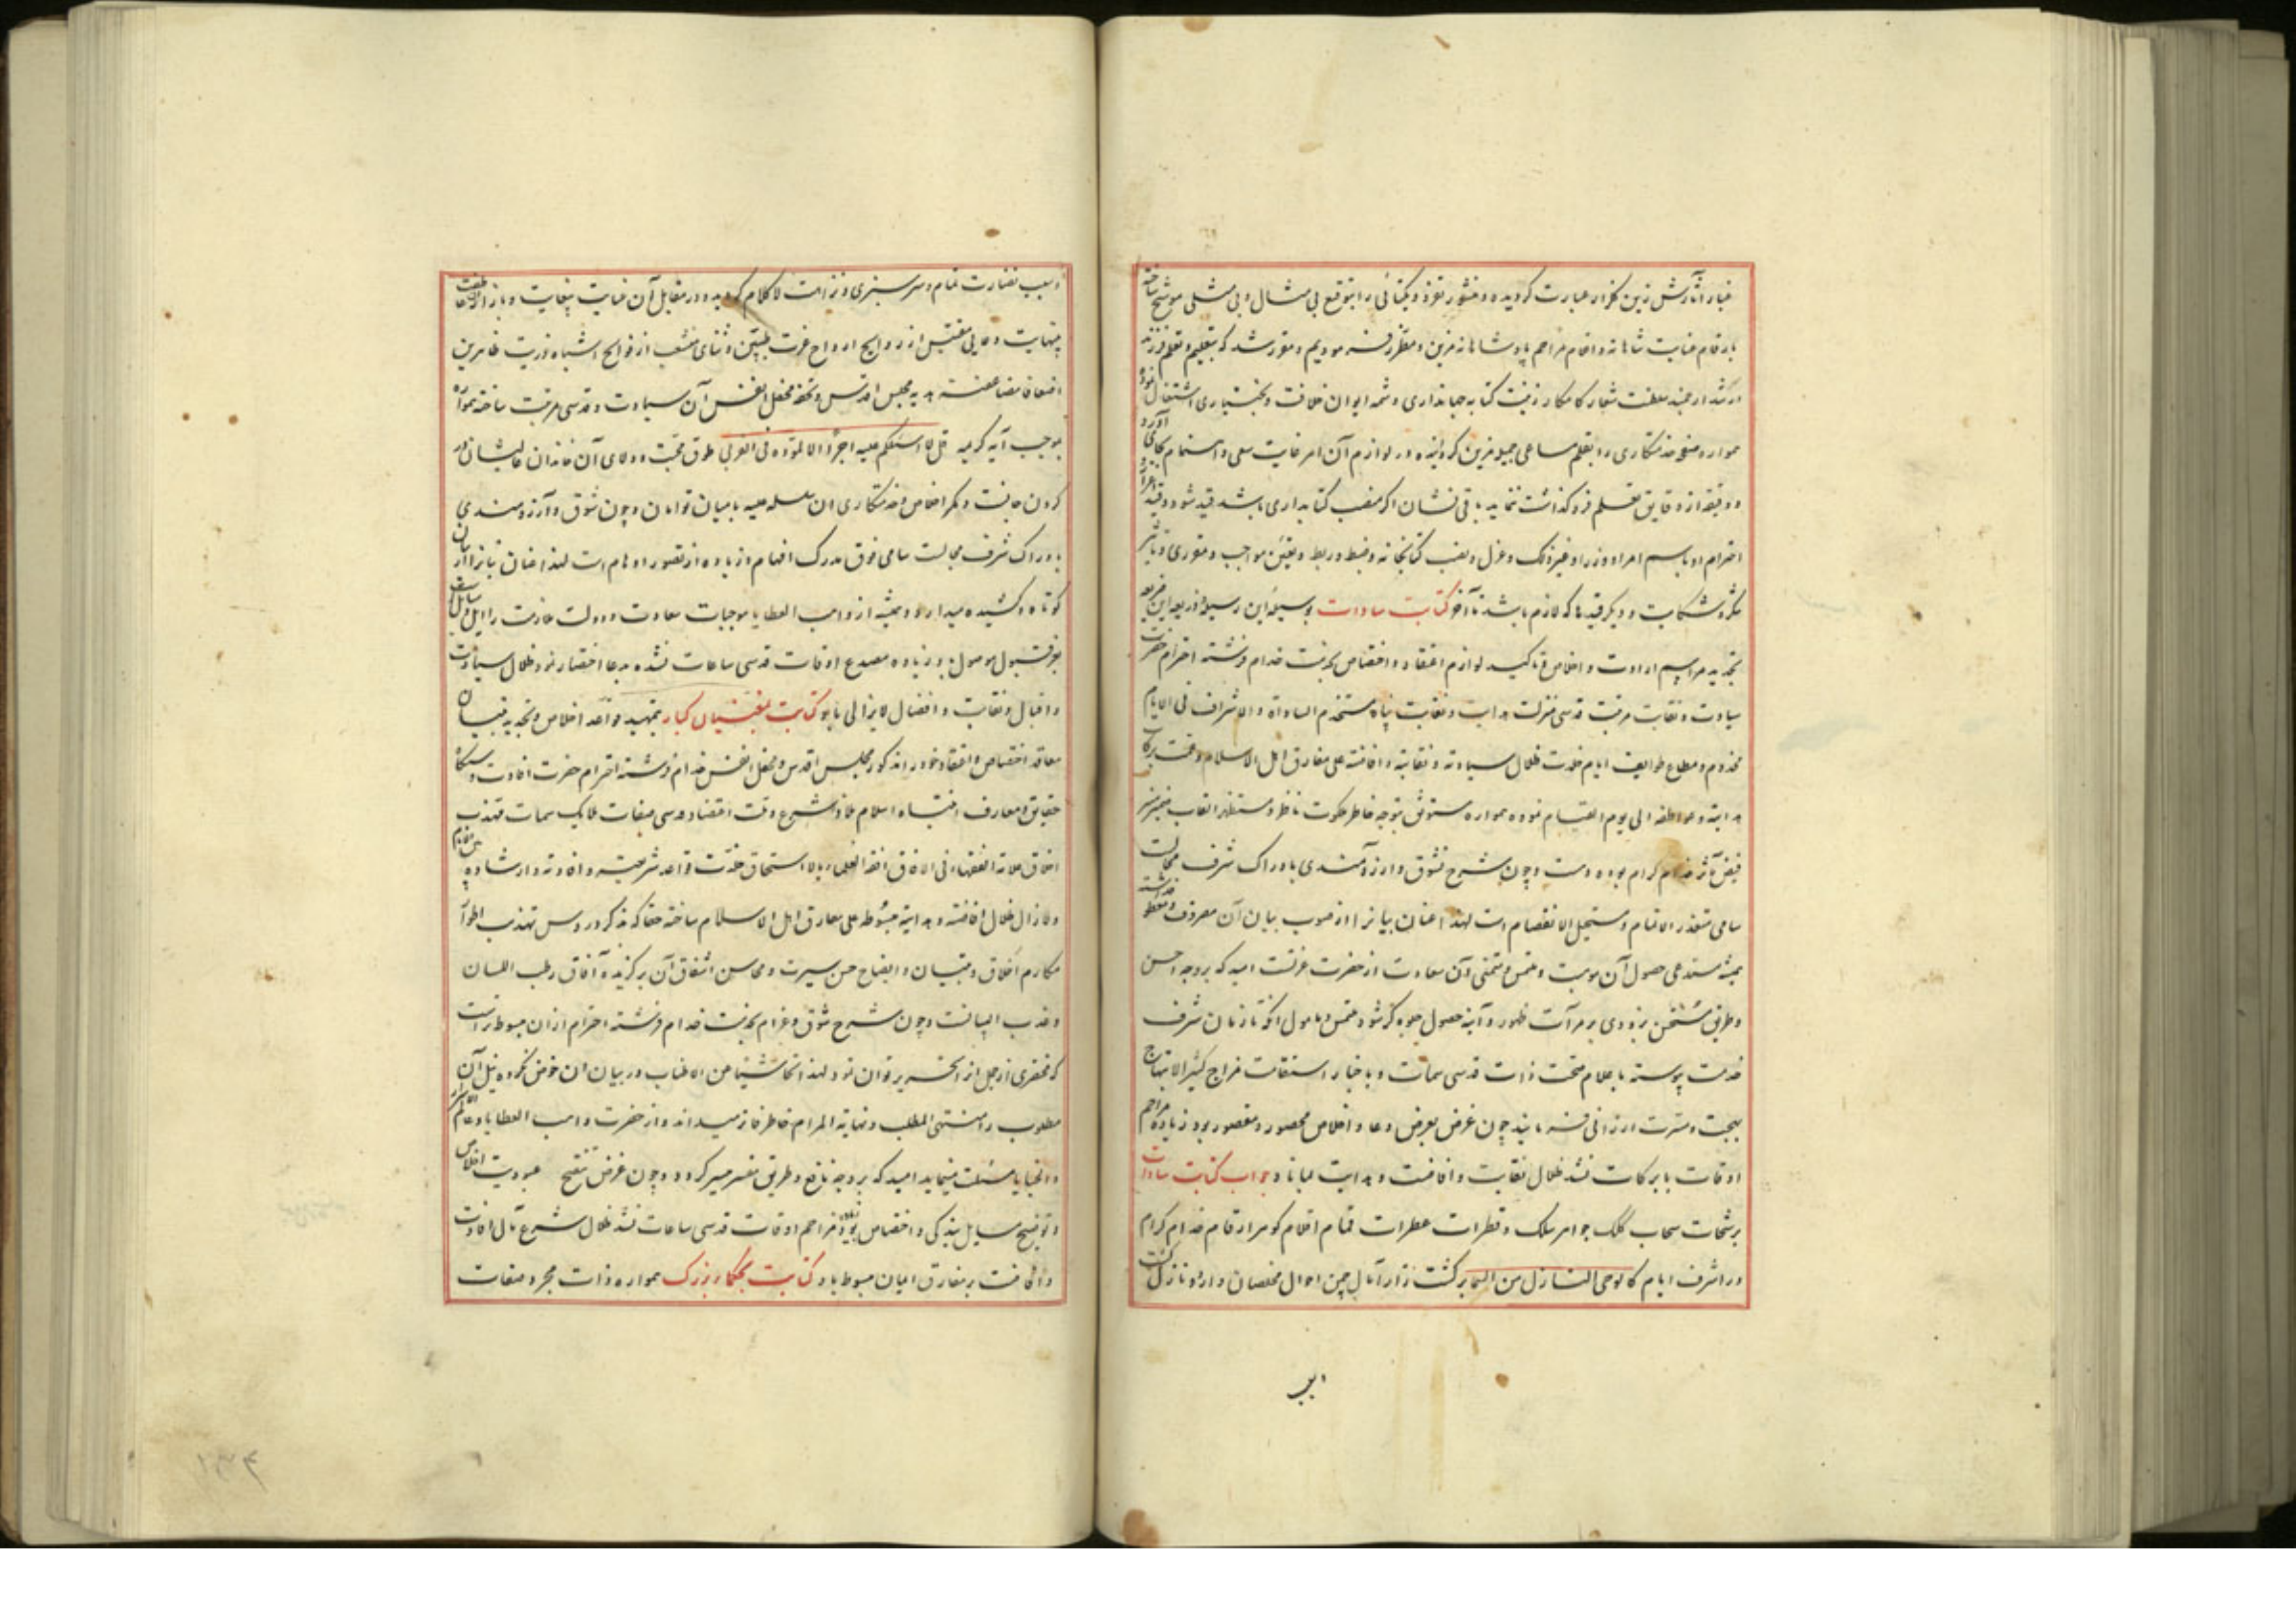 غبار آثارش زین گلزار عبارت گردیده و منشور تفرد و یکتائی را بتوقیع بی مثال و بی مثلی موشح ساخته
بارقام عنایت شاهانه و اقلام مراحم پادشاهانه مزین و مطرز فرمودیم و مقرر شد که بتعلیم و تعلم فرزند
ارشد ارجمند سلطنت شعار کامکار زینت کتابه جهانداری و شمه ایوان خلافت و بختیاری اشتغال نموده
همواره صفحه خدمتکاری را بقلم مساعی جمیله مزین گردانیده در لوازم آن امر غایت سعی و اهتمام بجای آورد
و دقیقه از دقایق تعلیم فرو گذاشت ننماید باقی نشان اگر منصب کتابداری باشد قید شود و قید
احترام او باسم امرا و وزرا و غیر ذلک و عزل و نصب کتابخانه و ضبط و ربط و تعیین مواجب و مقرری و تأثیر
شکر و شکایت و دیگر قیدها که لازم باشد تا آخر کتابت سادات بوسیله این رسیله و ذریعه این ضریعه
تجدید مراسم ارادت و اخلاص و تاکید لوازم اعتقاد و اختصاص بخدمت خدام فرشته احترام حضرت
سیادت و نقابت مرتبت قدسی منزلت هدایت و نقابت پناه مستخدم السادات و الاشراف فی الایام
مخدوم و مطاع طوایف ایام خلدت ظلال سیادته و نقابته و افاضته علی مفارق اهل الاسلام و عمت برکات
هدایته و عواطفه الی یوم القیام نموده همواره مستوثق بتوجه خاطر ملکوت ناظر و مستظهر القاب ضمیر منیر
فیض مآثر خدام کرام بوده و هست و چون شرح تشوق و آرزومندی بادراک شرف مجالست
سامی متعذر الاتمام و مستحیل الانفصام است لهذا عنان بیان را از صوب بیان آن مصروف و معطوف داشته
همیشه مستدعی حصول آن موهبت و ملتمس و متمنی آن سعادت از حضرت عزتست امید که بروجه احسن
و طریق مستحسن بزودی بر مرآت ظهور و آینه حصول جلوه گر شود ملتمس و مامول آنکه تا زمان شرف
خدمت پیوسته باعلام صحت ذات قدسی سمات و باخبار استقامت مزاج کثیر الابتهاج
بهجت و مسرت ارزانی فرمایند چون غرض بعرض دعا و اخلاص محصور و مقصور بود زیاده مزاحم
اوقات با برکات نشد ظلال نقابت و افاضت و هدایت لمیانا و جواب کتابت سادات
برشحات سحاب کلک جواهر سلک و قطرات عطرات غمام اقلام گوهر ارقام خدام کرام
در اشرف ایام کالوحی النازل من السما بر کشت زار آمال چمن احوال مخلصان وارد و نازل گشت
سبب نضارت تمام و سرسبزی و نزاهت لاکلام گردیده در مقابل آن عنایت بیغایت و بازای آن عاطفت
بینهایت دعایی مقتبس از روایح ارواح عزت طیبین و ثنای منشعب از فوایح اشباه ذریت طاهرین
اضعافا مضاعفه هدیه مجلس اقدس و تحفه محفل انفس آن سیادت و قدسی مرتبت ساخته همواره
بموجب آیه کریمه قل لا اسئلکم علیه اجرا الا المودة فی القربی طوق محبت و ولای آن خاندان عالیشان در
گردن جانست و کمر اخلاص و خدمتکاری ان سلسله علیه با میان توامان و چون شوق و آرزومندی
بادراک شرف مجالست سامی فوق مدرک افهام و زیاده از تصور اوهام است لهذا عنان بیان را از آن
کوتاه و کشیده میدارد و همیشه از واهب العطایا موجبات سعادت و دولت ملازمت را سایل و آمل
بعز قبول موصول بود زیاده مصدع اوقات قدسی ساعات نشده بدعا اختصار نمود ظلال سیادت
و اقبال و نقابت و افضال لایزالی باد کتابت بمفتیان کبار بتمهید قواعد اخلاص و تجدید بنیان
معاقد اختصاص و اعتقاد خود را مذکور مجلس اقدس و محفل انفس خدام فرشته احترام حضرت افادت دستگاه
حقایق و معارف انتباه اسلام ملاذ شریعت اقتضا قدسی صفات ملایک سمات مهذب
اخلاق علامة الفقهاء فی الافاق افقه العلماء بالاستحقاق خلدت قواعد شریعته و افادته و ارشاده
و لازال ظلال افاضته و هدایته مبسوطه علی مفارق اهل الاسلام ساخته حقا که مذکور دروس تهذیب اطوار
مکارم اخلاق و تبیان و ایضاح حسن سیرت و محاسن اشفاق آن برگزیده آفاق رطب اللسان
و عذب البیانست و چون شرح شوق و غرام بخدمت خدام فرشته احترام از ان مبسوط تر است
که مختصری از مجمل از تحریر توان نمود لهذا تحاشیا من الاطناب در بیان ان خوض نکرده نیل آن
مطلوب را منتهی المطلب و نهایة المرام خاطر فاتر میداند و از حضرت واهب العطایا و عالم السرائر
و الخفایا مسئلت مینماید امید که بروجه نافع و طریق متسر میسر گردد و چون غرض تنقیح عبودیت اخلاص
و توضیح مسایل بندگی و اختصاص بود مزاحم اوقات قدسی ساعات نشد ظلال شرع مآل افادت
و افاضت بر مفارق اعیان مبسوط باد کتابت بحکماء بزرگ همواره ذات مجرد صفات
ابر